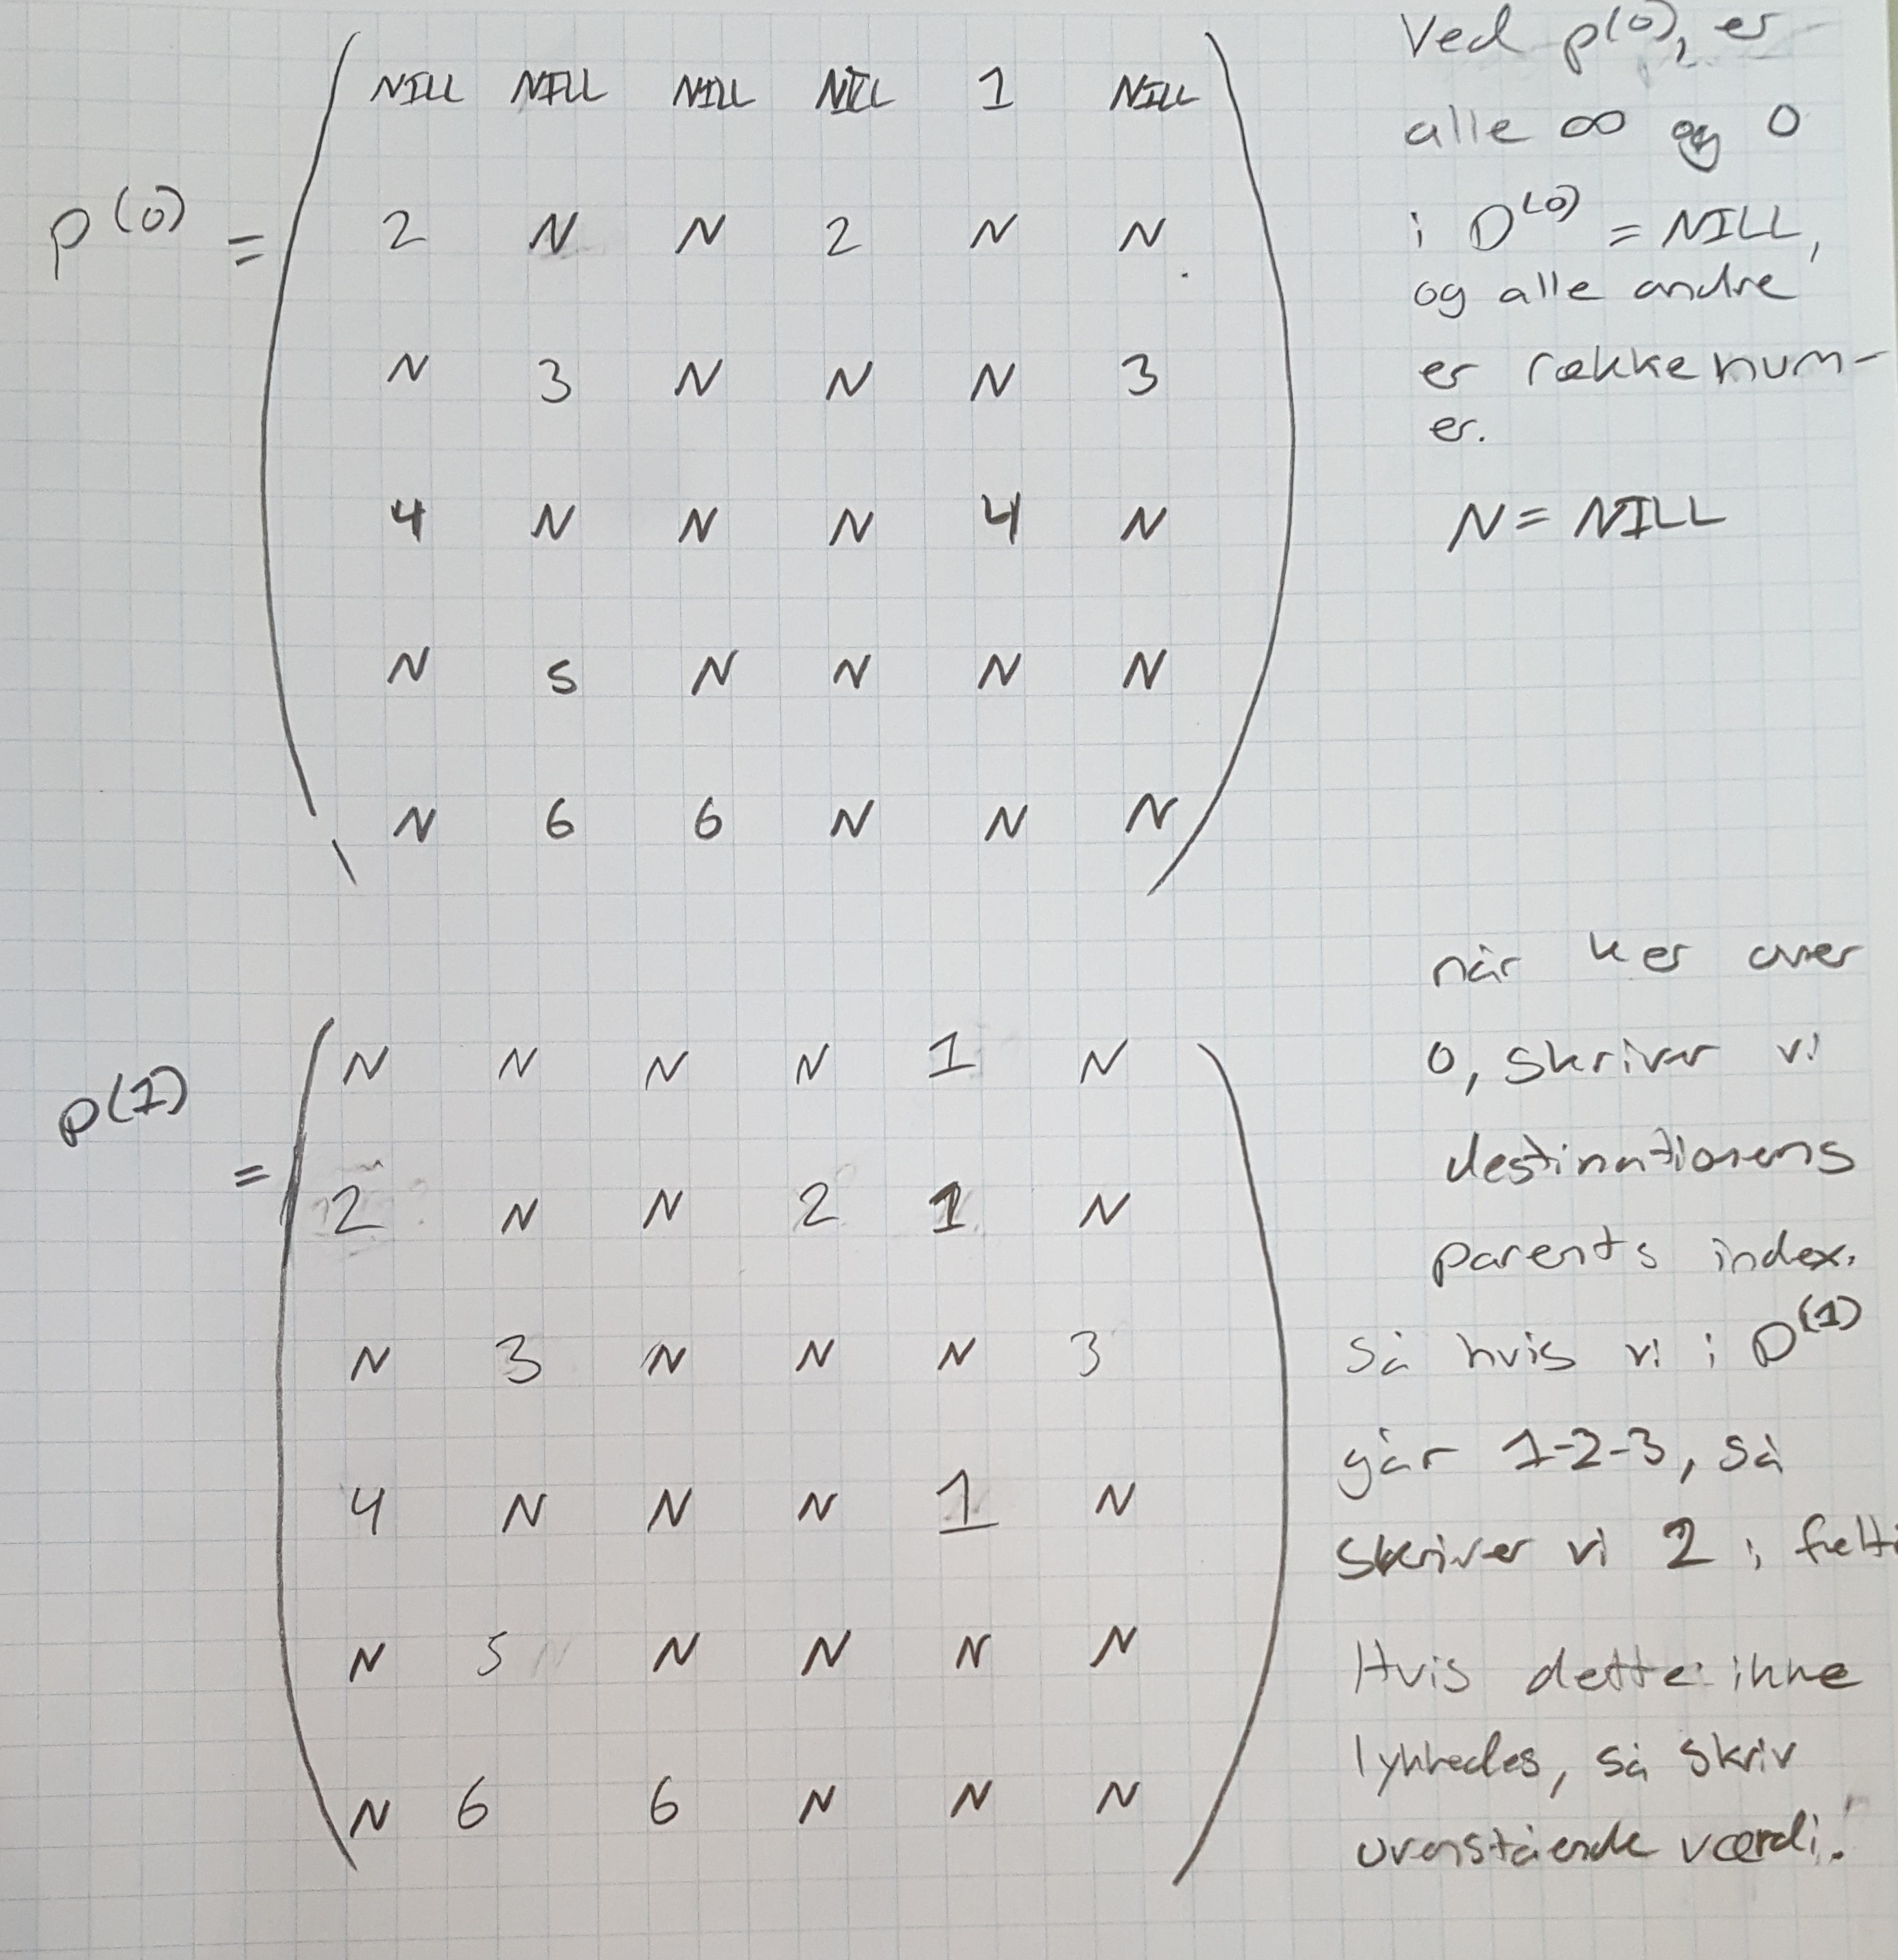 P(0) =
NILL NILL NILL NILL 1 NILL
2 N N 2 N N
N 3 N N N 3
4 N N N 4 N
N 5 N N N N
N 6 6 N N N
Ved p(0), er
alle ∞ og 0
i D(0) = NILL,
og alle andre
er rækkenum-
er.
N = NILL
P(1) =
N N N N 1 N
2 N N 2 1 N
N 3 N N N 3
4 N N N 1 N
N 5 N N N N
N 6 6 N N N
når k er over
0, skriver vi
destinationens
parents index.
Så hvis vi i D(1)
går 1-2-3, så
skriver vi 2 i
Hvis dette ikke
lykkedes, så skriv
ovenstående værdi!